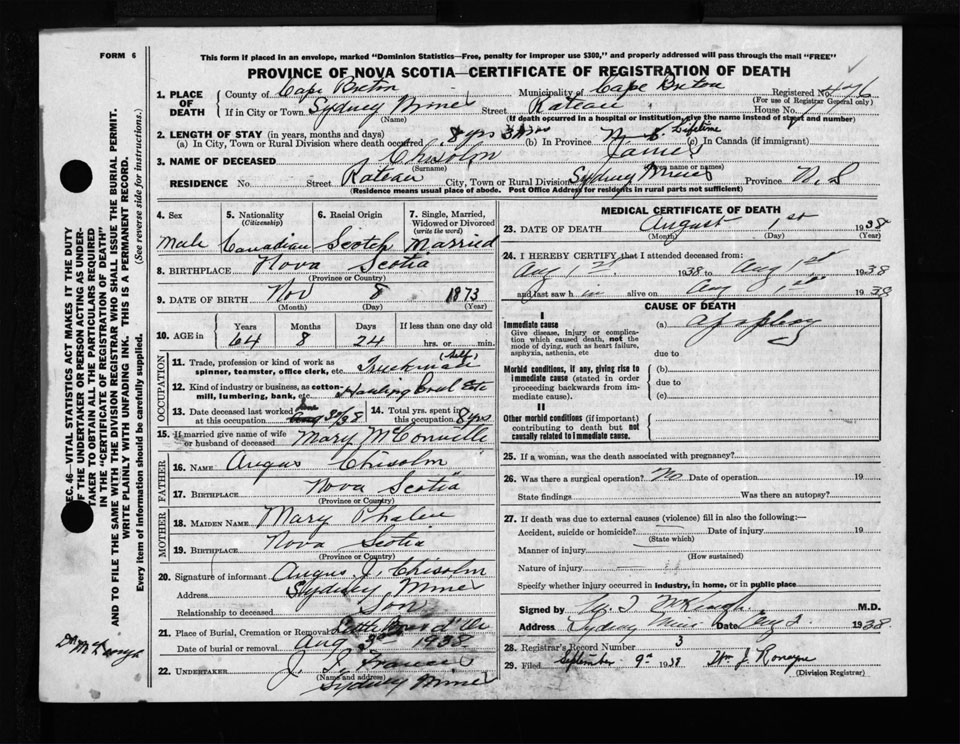 FORM 6
This form if placed in an envelope, marked "Dominion Statistics—Free, penalty for improper use $300," and properly addressed will pass through the mail "FREE"
PROVINCE OF NOVA SCOTIA—CERTIFICATE OF REGISTRATION OF DEATH
1. PLACE OF DEATH
County of Cape Breton Municipality of Cape Breton Registered No. 446
(For use of Registrar General only)
If in City or Town Sydney Mines Street House No.
(Name) (If death occurred in a hospital or institution, give the name instead of street and number)
2. LENGTH OF STAY (in years, months and days)
(a) In City, Town or Rural Division where death occurred 8 yrs (b) In Province Lifetime (c) In Canada (if immigrant)
3. NAME OF DECEASED Chisolm James
(Surname) (Given name or names)
RESIDENCE No. Street City, Town or Rural Division Sydney Mines Province N.S
(Residence means usual place of abode. Post Office Address for residents in rural parts not sufficient)
4. Sex Male
5. Nationality (Citizenship) Canadian
6. Racial Origin Scotch
7. Single, Married, Widowed or Divorced (write the word) Married
8. BIRTHPLACE Nova Scotia
(Province or Country)
9. DATE OF BIRTH Nov 8 1873
(Month) (Day) (Year)
10. AGE in Years Months Days If less than one day old
64 8 24 hrs. or min.
OCCUPATION
11. Trade, profession or kind of work as spinner, teamster, office clerk, etc. Truckman (Self)
12. Kind of industry or business, as cotton-mill, lumbering, bank, etc. Hauling Coal Etc
13. Date deceased last worked at this occupation
14. Total yrs. spent in this occupation 8 yrs
15. If married give name of wife or husband of deceased Mary McConville
FATHER
16. NAME Angus Chisolm
17. BIRTHPLACE Nova Scotia
(Province or Country)
MOTHER
18. MAIDEN NAME Mary Phalen
19. BIRTHPLACE Nova Scotia
(Province or Country)
20. Signature of informant Angus J. Chisolm
Address Sydney Mines
Relationship to deceased Son
21. Place of Burial, Cremation or Removal Little Bras d'Or
Date of burial or removal Aug 3rd 1938
22. UNDERTAKER J. Francis
(Name and address)
Sydney Mines
MEDICAL CERTIFICATE OF DEATH
23. DATE OF DEATH August 1st 1938
(Month) (Day) (Year)
24. I HEREBY CERTIFY that I attended deceased from:
Aug 1st 1938 to Aug 1st 1938
and last saw h im alive on Aug 1st 1938
CAUSE OF DEATH
I
Immediate cause
Give disease, injury or complication which caused death, not the mode of dying, such as heart failure, asphyxia, asthenia, etc
(a)
due to
Morbid conditions, if any, giving rise to immediate cause (stated in order proceeding backwards from immediate cause).
(b)
due to
(c)
II
Other morbid conditions (if important) contributing to death but not causally related to immediate cause.
25. If a woman, was the death associated with pregnancy?
26. Was there a surgical operation? No Date of operation 19
State findings Was there an autopsy?
27. If death was due to external causes (violence) fill in also the following:—
Accident, suicide or homicide? Date of injury 19
(State which)
Manner of injury
(How sustained)
Nature of injury
Specify whether injury occurred in industry, in home, or in public place
Signed by McKeough M.D.
Address Sydney Mines Date Aug 2 1938
28. Registrar's Record Number 3
29. Filed September 9th 1938 Wm J. Ronayne
(Division Registrar)
SEC. 46—VITAL STATISTICS ACT MAKES IT THE DUTY
OF THE UNDERTAKER OR PERSON ACTING AS UNDERTAKER TO OBTAIN ALL THE PARTICULARS REQUIRED
IN THE "CERTIFICATE OF REGISTRATION OF DEATH"
AND TO FILE THE SAME WITH THE DIVISION REGISTRAR WHO SHALL ISSUE THE BURIAL PERMIT.
WRITE PLAINLY WITH UNFADING INK. THIS IS A PERMANENT RECORD.
Every item of information should be carefully supplied. (See reverse side for instructions.)
Dr McKeough